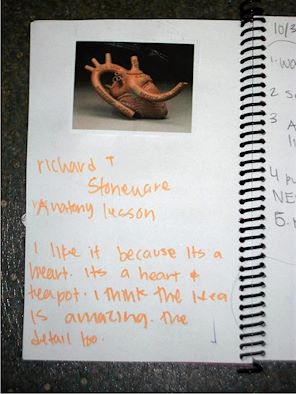 richard T
Stoneware
"Anatomy lesson
I like it because its a
heart. its a heart &
teapot. I think the idea
is amazing. the
detail too.
10/3
1. wa
2 S
3 A
li
4 pu
NE
5.